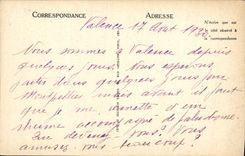 CORRESPONDANCE
ADRESSE
N'écrire que sur
côté réservé à
la correspondance
Valence 17 Août 193
Nous sommes à Valence depuis
quelques jours. Nous espérons
partir dans quelques jours pour
Montpellier mais avant il faut
que je me remette d'un
rhume accompagné de paludisme.
Que devenez vous? Vous
amusez vous beaucoup?